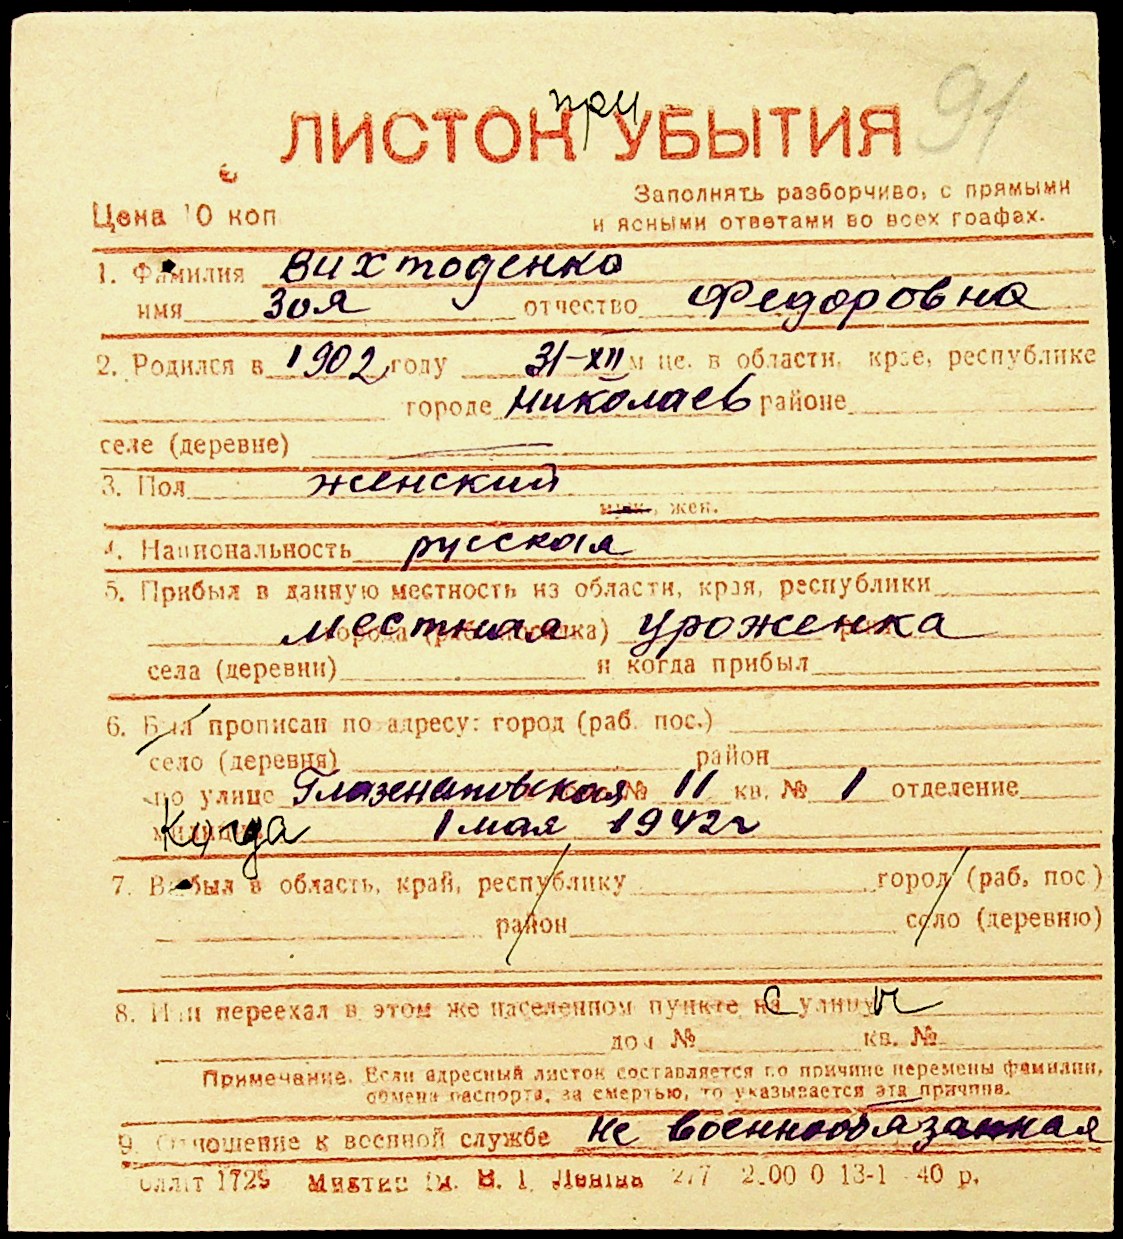 при
ЛИСТОК УБЫТИЯ
91
Заполнять разборчиво, с прямыми
Цена 10 коп
и ясными ответами во всех графах.
1. Фамилия Вихтоденко
имя Зоя отчество Федоровна
2. Родился в 1902 году 31-XII м це. в области, крае, республике
городе Николаев районе
селе (деревне)
3. Пол женский
муж., жен.
4. Национальность русская
5. Прибыл в данную местность из области, края, республики
города (раб. поселка) местная уроженка
села (деревни) и когда прибыл
6. Был прописан по адресу: город (раб. пос.)
село (деревня) район
по улице Глазенаповская № 11 кв. № 1 отделение
милиции Когда 1 мая 1942 г
7. Выбыл в область, край, республику город (раб. пос.)
район село (деревню)
8. Или переехал в этом же населенном пункте на с улицу и
дом № кв. №
Примечание. Если адресный листок составляется по причине перемены фамилии,
обмена паспорта, за смертью, то указывается эта причина.
9. Отношение к военной службе не военнообязанная
1729 им. В. И. Ленина 277 2.00 0 13-1 40 р.